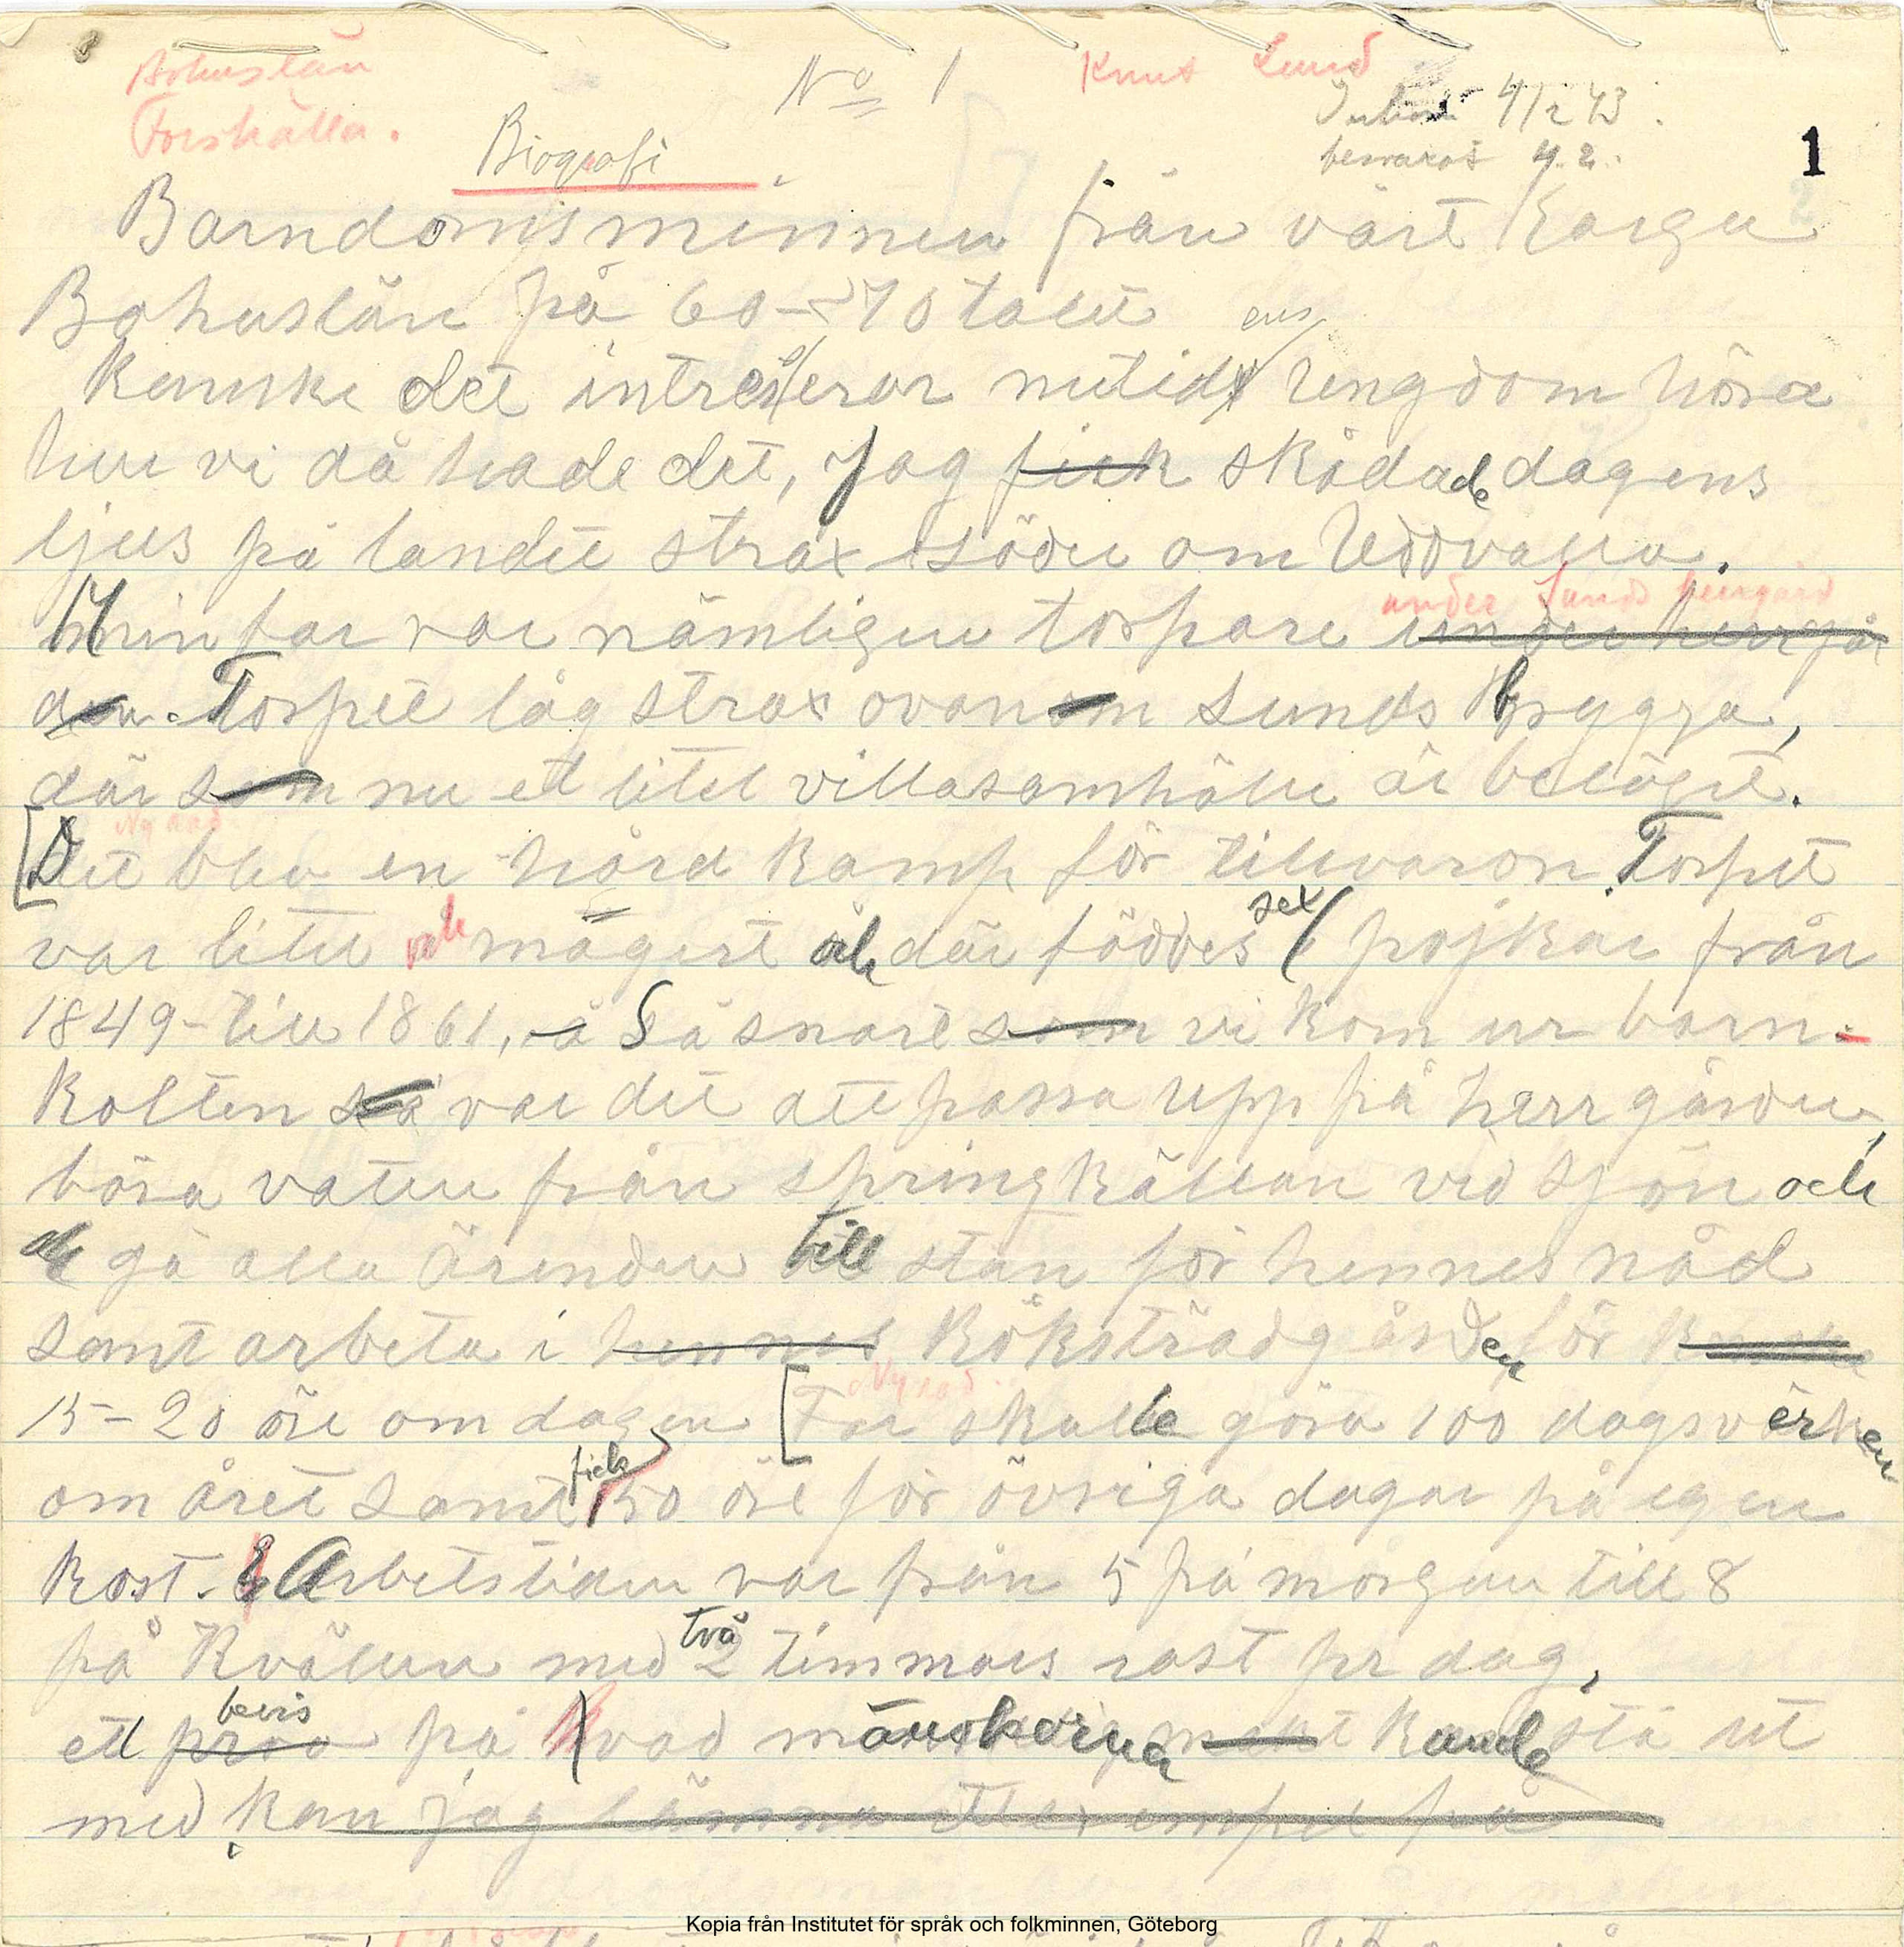 Bohuslän
Forshälla.
No 1
Knut Lund
4/2 43.
besvarat 4.2.
1
Biografi
Barndomsminnen från vårt karga
Bohuslän på 60-70 talet
ens
Kanske det intresserar nutids ungdom höra
huru vi då hade det, Jag fick skådade dagens
ljus på landet strax söder om Uddvalla.
under Sunds herrgård
Min far var nämligen torpare under herrgår
den. Torpet låg strax ovanom Sunds Brygga,
där som nu et litet villasamhälle är beläget.
Ny rad.
Det blev en hård kamp för tillvaron. Torpet
sex
var litet och magert och där föddes 6 pojkar från
1849-till 1861, å Så snart som vi kom ur barn-
kolten så var det att passa upp på herrgården,
bära vatten från springkällan vid sjön och
och gå alla ärenden till stan för hennes nåd
samt arbeta i hennes köksträdgården för
Ny rad.
15-20 öre om dagen [Far skulle göra 100 dagsverken
fick
om året samt 50 öre för övriga dagar på egen
kost. Arbetstiden var från 5 på morgon till 8
två
på kvällen med 2 timmars rast pr dag,
bevis
ett prov på hvad mänskorna kunde stå ut
med kan jag lämna ett exempel på
Kopia från Institutet för språk och folkminnen, Göteborg